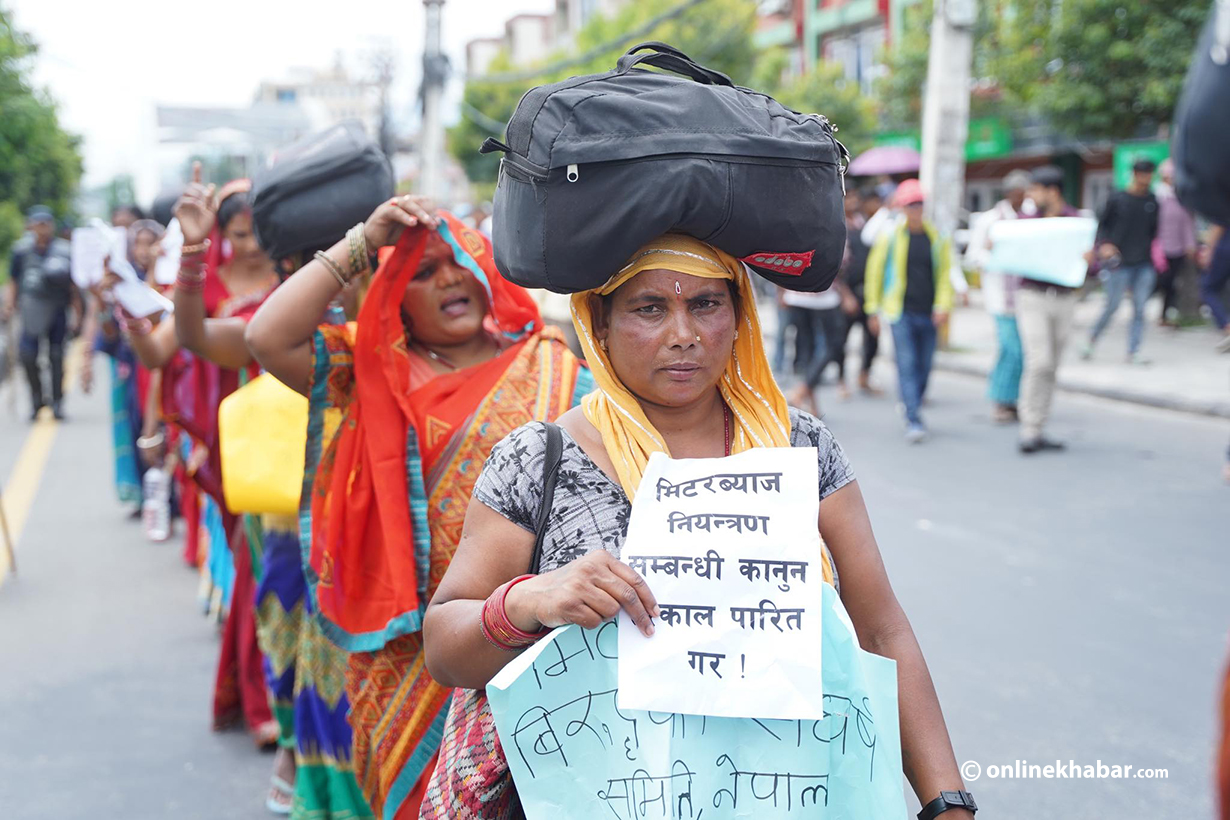 adidas
मिटरब्याज
नियन्त्रण
सम्बन्धी कानुन
काल पारित
गर !
मि
बिरुद्धका
समिति, नेपाल
© onlinekhabar.com